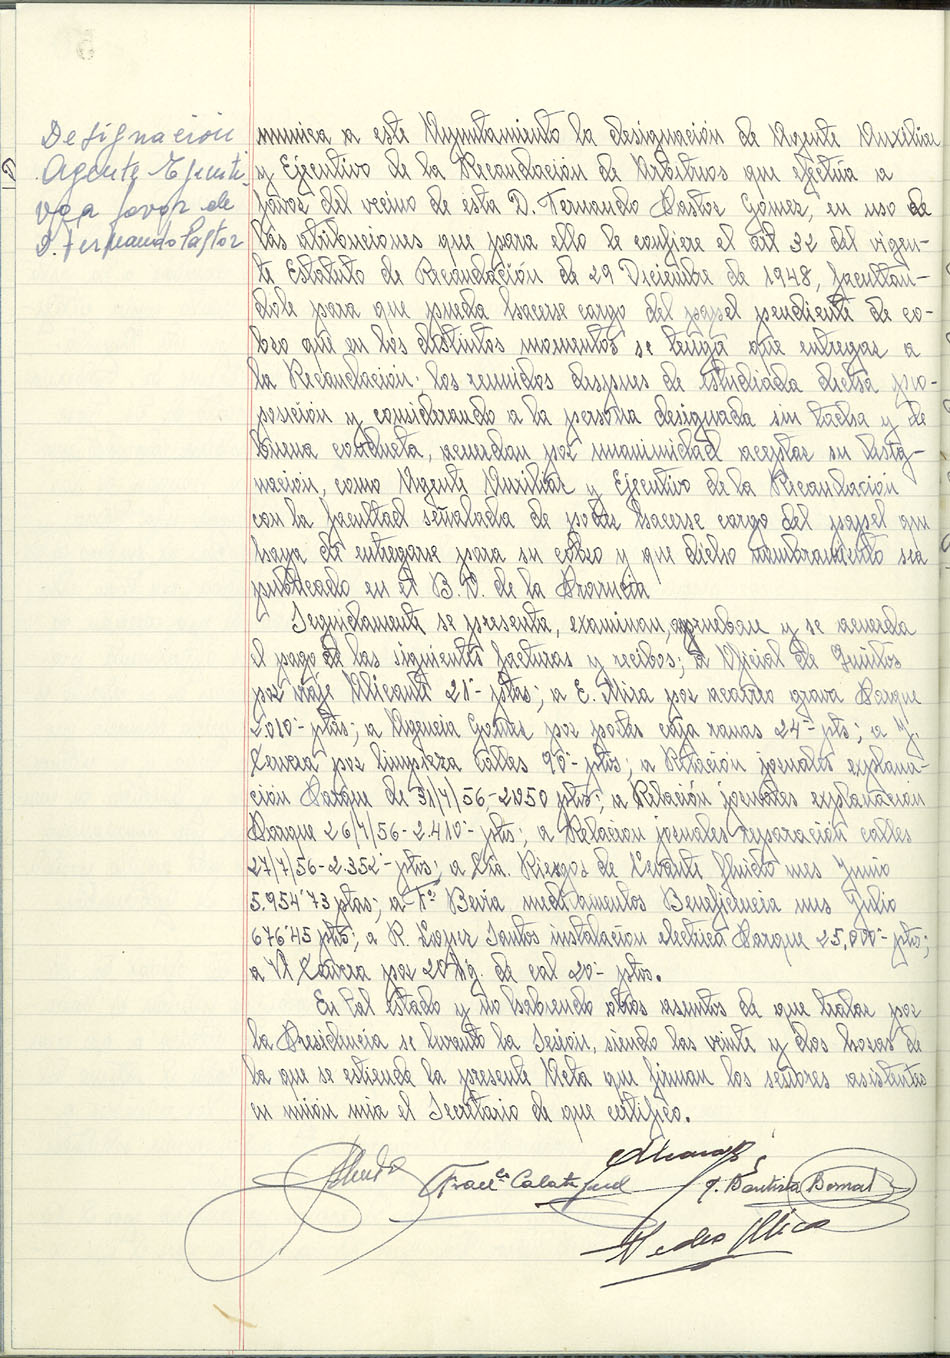 Designación
Agente Ejecuti-
vo a favor de
D. Fernando Pastor
munica a este Ayuntamiento la designación de Agente Auxiliar
y Ejecutivo de la Recaudación de Arbitrios que efectúa a
favor del vecino de esta D. Fernando Pastor Gómez, en uso de
las atribuciones que para ello le confiere el art 32 del vigen-
te Estatuto de Recaudación de 29 Diciembre de 1948, facultan-
dole para que pueda hacerse cargo del papel pendiente de co-
bro que en los distintos momentos se tenga que entregar a
la Recaudación; los reunidos despues de estudiada dicha pro-
posición y considerando a la persona designada sin tacha y de
buena conducta, acuerdan por unanimidad aceptar su desig-
nación, como Agente Auxiliar y Ejecutivo de la Recaudación
con la facultad señalada de poder hacerse cargo del papel que
haya de entregarse para su cobro y que dicho nombramiento sea
publicado en el B.O. de la Provincia
Seguidamente se presenta, examinan, aprueban y se acuerda
el pago de las siguientes facturas y recibos; a Oficial de Quintos
por viaje Alicante 21'- ptas; a E. Mira por acarreo grava Parque
2010'- ptas; a Agencia Gomis por portes caja ranas 24'- pts; a
por limpieza Calles 90'- ptas; a Relación jornales explana-
ción Parque de 31/7/56, 2050 ptas; a Relación jornales explanacion
Parque 26/7/56-2.410'- ptas; a Relacion jornales reparación calles
27/7/56-2.352'- ptas; a Cía. Riegos de Levante fluido mes Junio
5.954'73 ptas; a Fº Beira medicamentos Beneficencia mes Julio
676'45 ptas; a R. Lopez Santos instalacion electrica Parque 25,000'- ptas;
a por 20 Kg. de cal 20'- ptas.
En tal estado y no habiendo otros asuntos de que tratar por
la Presidencia se levantó la Sesión, siendo las veinte y dos horas de
la que se estiende la presente Acta que firman los señores asistentes
en unión mia el Secretario de que certifico.
Franco Calatayud
J. Bautista Bernal